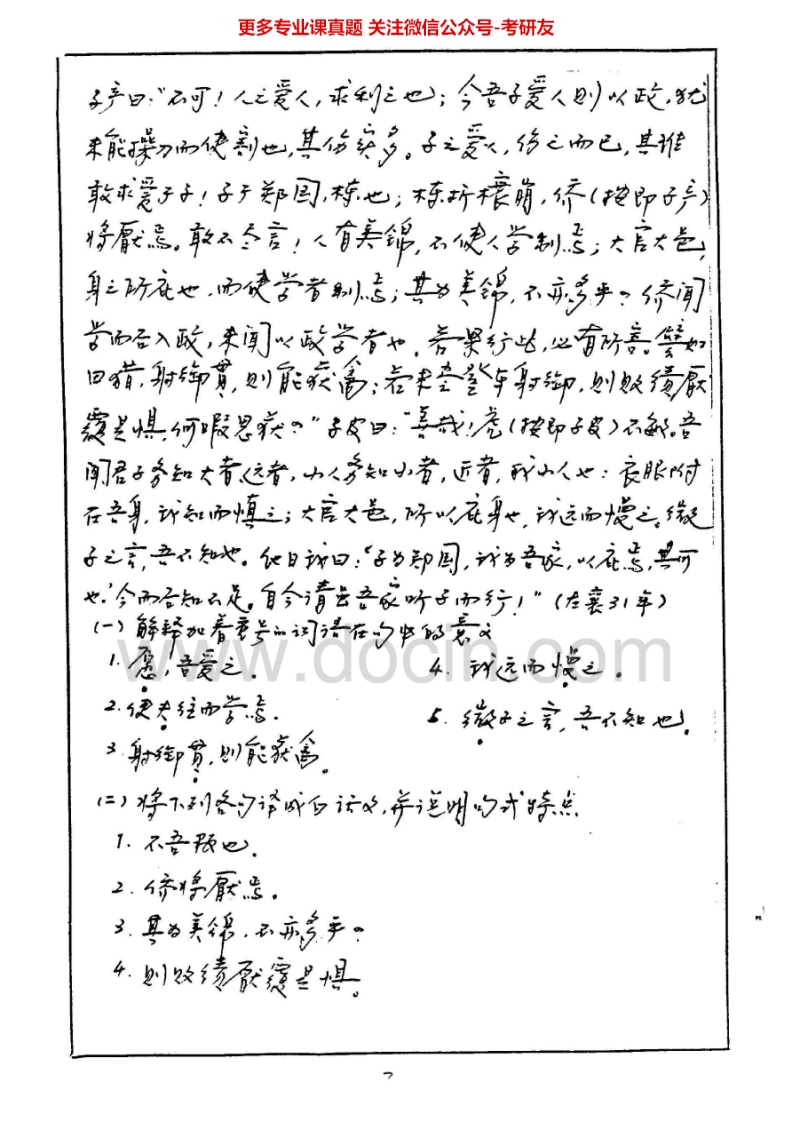 更多专业课真题 关注微信公众号-考研友
子产曰：“不可！人之爱人，求利之也；今吾子爱人则以政，犹
未能操刀而使割也，其伤实多。子之爱人，伤之而已，其谁
敢求爱于子！子于郑国，栋也；栋折榱崩，侨（按即子产）
将厭焉。敢不尽言！人有美锦，不使人学制焉；大官大邑，
身之所庇也，而使学者制焉；其为美锦，不亦多乎？侨闻
学而后入政，未闻以政学者也。若果行此，必有所害。譬如
田猎，射御贯，则能获禽；若未尝登车射御，则败绩厭
覆是惧，何暇思获？”子皮曰：“善哉！虎（按即子皮）不敏。吾
闻君子务知大者、远者，小人务知小者，近者，我小人也：衣服附
在吾身，我知而慎之；大官大邑，所以庇身也，我远而慢之。微
子之言，吾不知也。他日我曰：‘子为郑国，我为吾家，以庇焉，其可
也’。今而后知不足。自今请虽吾家听子而行！”（左襄31年）
（一）解释加着重号的词语在句中的意义
1. 愿，吾爱之。
4. 我远而慢之。
2. 使夫往而学焉。
5. 微子之言，吾不知也。
3. 射御贯，则能获禽。
（二）将下列各句译成白话文，并说明句式特点
1. 不吾叛也。
2. 侨将厭焉。
3. 其为美锦，不亦多乎？
4. 则败绩厭覆是惧。
www.docin.com
2